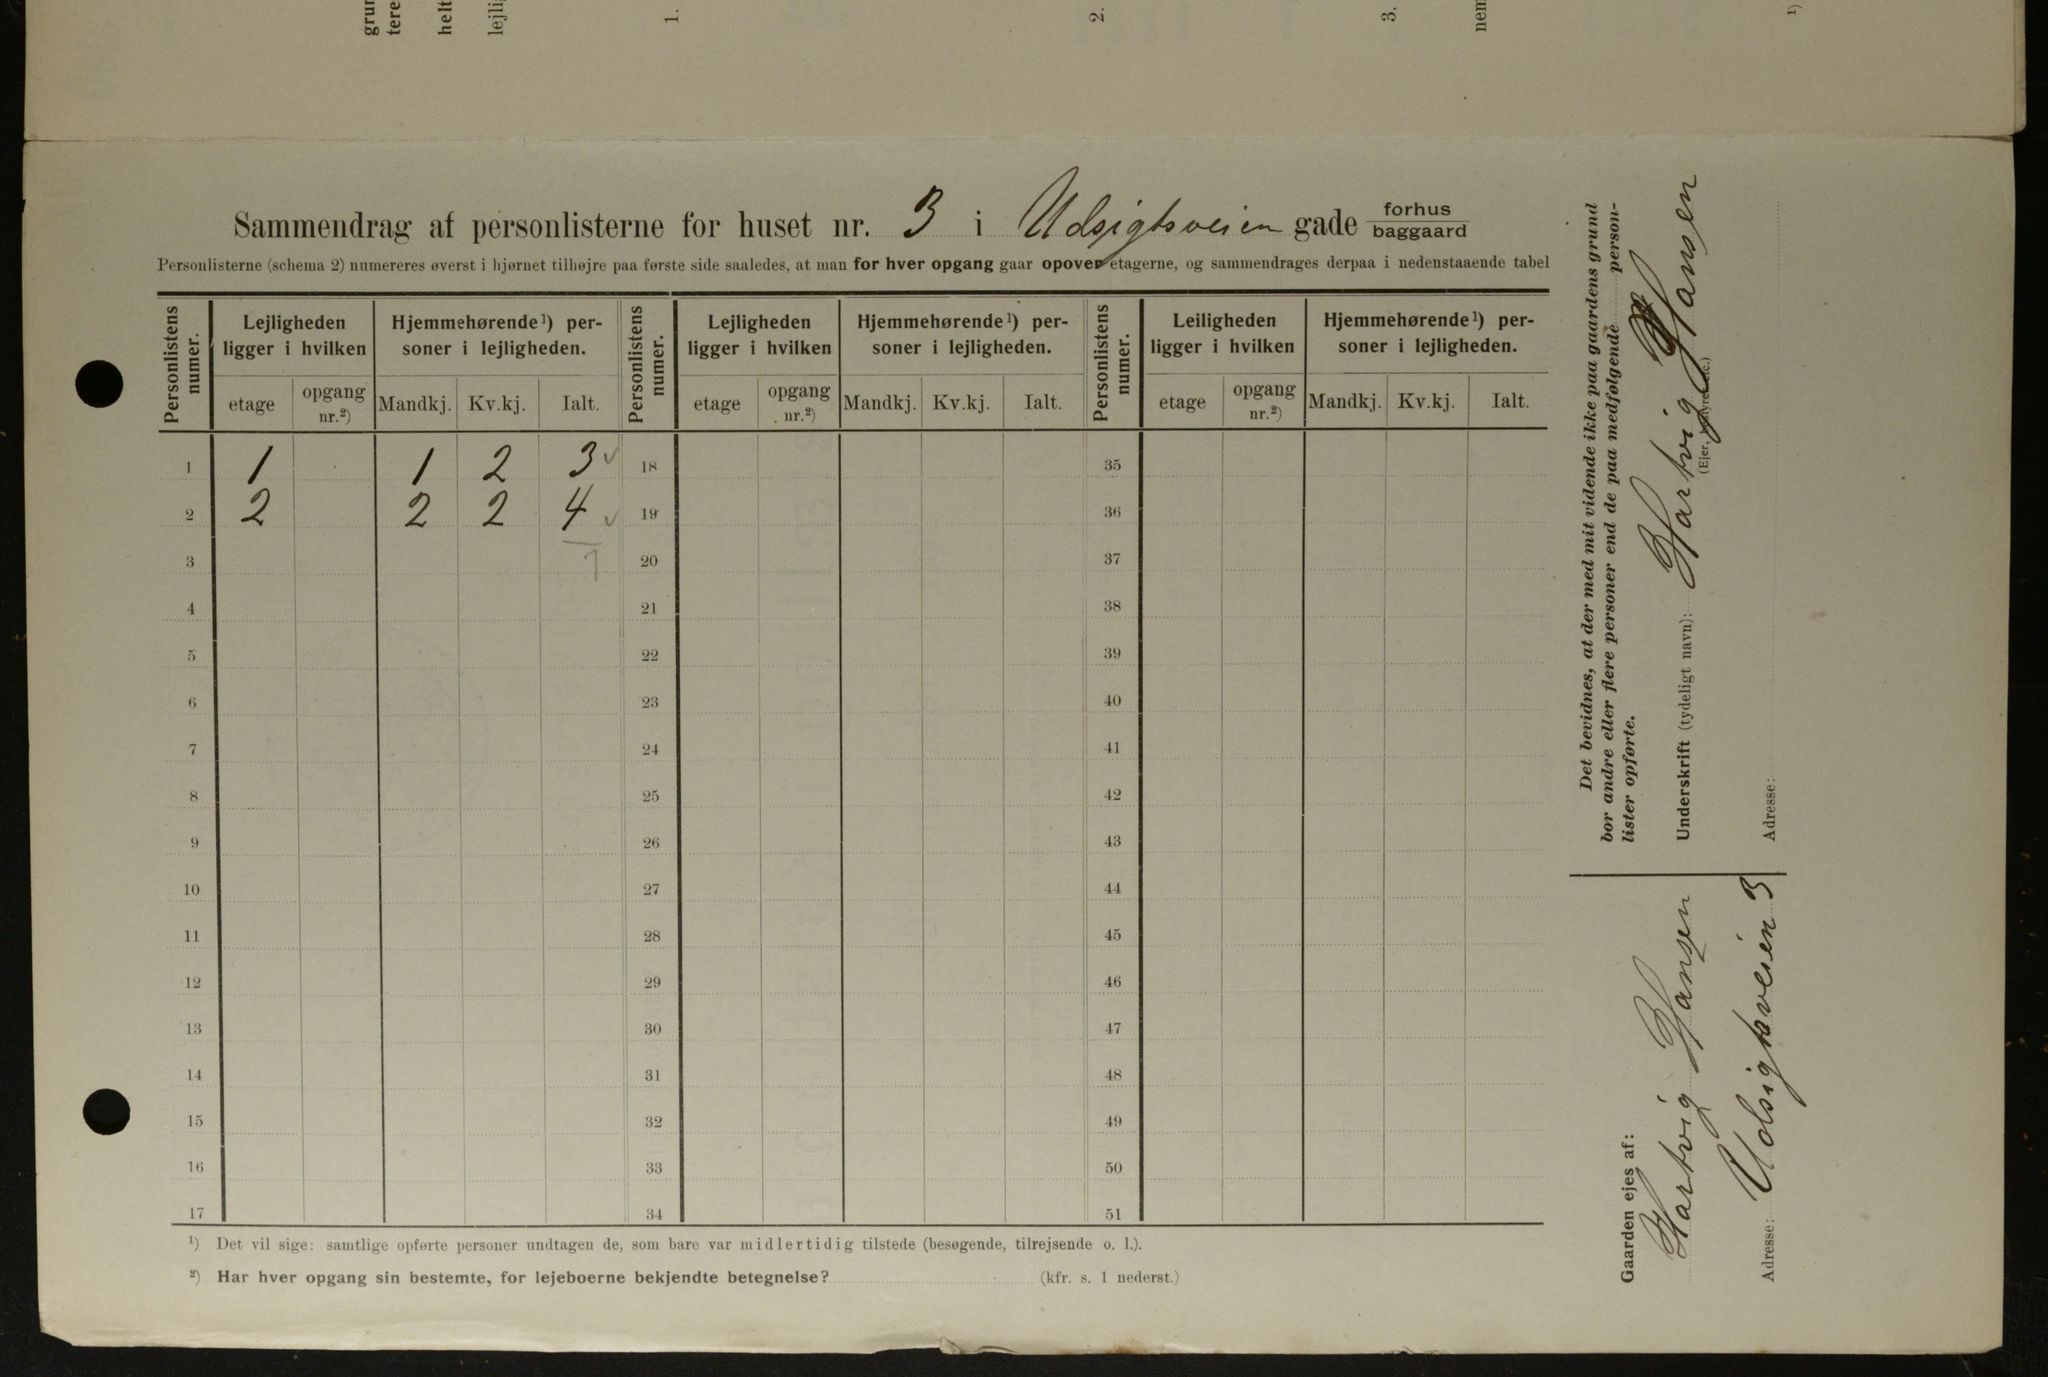 grun
tere
helt
lejli
1.
2.
3.
nem
1)
Sammendrag af personlisterne for huset nr. 3 i Udsigtsveien gade forhus
baggaard
Personlisterne (schema 2) numereres øverst i hjørnet tilhøjre paa første side saaledes, at man for hver opgang gaar opover etagerne, og sammendrages derpaa i nedenstaaende tabel
Personlistens numer. Lejligheden ligger i hvilken Hjemmehørende¹) personer i lejligheden. Personlistens numer. Lejligheden ligger i hvilken Hjemmehørende¹) personer i lejligheden. Personlistens numer. Leiligheden ligger i hvilken Hjemmehørende¹) personer i lejligheden.
etage opgang nr.²) Mandkj. Kv.kj. Ialt. etage opgang nr.²) Mandkj. Kv.kj. Ialt. etage opgang nr.²) Mandkj. Kv.kj. Ialt.
1 1 1 2 3 ✓ 18 35
2 2 2 2 4 ✓ 19 36
3 7 20 37
4 21 38
5 22 39
6 23 40
7 24 41
8 25 42
9 26 43
10 27 44
11 28 45
12 29 46
13 30 47
14 31 48
15 32 49
16 33 50
17 34 51
¹) Det vil sige: samtlige opførte personer undtagen de, som bare var midlertidig tilstede (besøgende, tilrejsende o. l.).
²) Har hver opgang sin bestemte, for lejeboerne bekjendte betegnelse? (kfr. s. 1 nederst.)
Gaarden ejes af:
Hartvig Hansen
Adresse: Udsigtsveien 3
Det bevidnes, at der med mit vidende ikke paa gaardens grund
bor andre eller flere personer end de paa medfølgende person-
lister opførte.
Underskrift (tydeligt navn): Hartvig Hansen
(Ejer, bestyrer etc.)
Adresse: